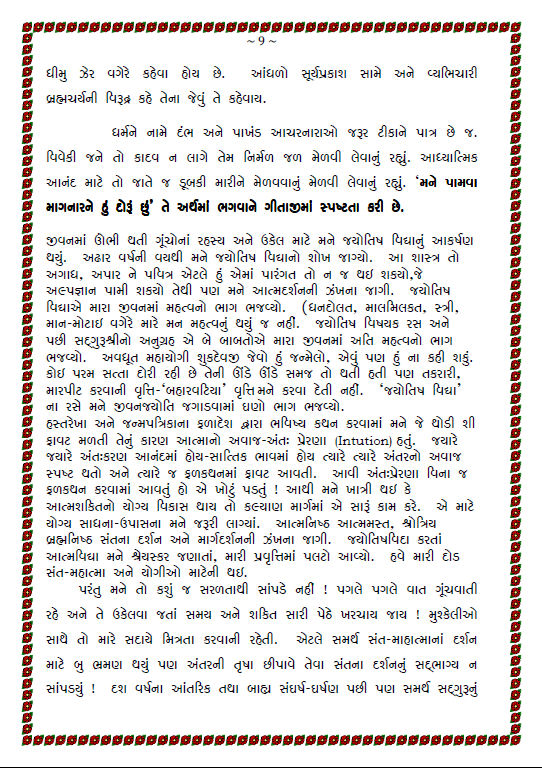 ~ 9 ~
ધીમુ ઝેર વગેરે કહેવા હોય છે. આંધળો સૂર્યપ્રકાશ સામે અને વ્યભિચારી
બ્રહ્મચર્યની વિરૂદ્ર કહે તેના જેવું તે કહેવાય.
ધર્મને નામે દંભ અને પાખંડ આચરનારાઓ જરૂર ટીકાને પાત્ર છે જ.
વિવેકી જને તો કાદવ ન લાગે તેમ નિર્મળ જળ મેળવી લેવાનું રહ્યું. આધ્યાત્મિક
આનંદ માટે તો જાતે જ ડૂબકી મારીને મેળવવાનું મેળવી લેવાનું રહ્યું. ‘મને પામવા
માગનારને હું દોરૂં છું’ તે અર્થમાં ભગવાને ગીતાજીમાં સ્પષ્ટતા કરી છે.
જીવનમાં ઊભી થતી ગૂંચોનાં રહસ્ય અને ઉકેલ માટે મને જયોતિષ વિદ્યાનું આકર્ષણ
થયું. અઢાર વર્ષની વયથી મને જયોતિષ વિદ્યાનો શોખ જાગ્યો. આ શાસ્ત્ર તો
અગાધ, અપાર ને પવિત્ર એટલે હું એમાં પારંગત તો ન જ થઇ શકયો,જે
અલ્પજ્ઞાન પામી શકયો તેથી પણ મને આત્મદર્શનની ઝંખના જાગી. જયોતિષ
વિદ્યાએ મારા જીવનમાં મહત્વનો ભાગ ભજવ્યો. (ધનદોલત, માલમિલકત, સ્ત્રી,
માન-મોટાઇ વગેરે મારે મન મહત્વનું થયું જ નહીં. જયોતિષ વિષયક રસ અને
પછી સદ્દગુરૂશ્રીનો અનુગ્રહ એ બે બાબતોએ મારા જીવનમાં અતિ મહત્વનો ભાગ
ભજવ્યો. અવધૂત મહાયોગી શુકદેવજી જેવો હું જન્મેલો, એવું પણ હું ના કહી શકું.
કોઇ પરમ સત્તા દોરી રહી છે તેની ઊંડે ઊંડે સમજ તો થતી હતી પણ તકરારી,
મારપીટ કરવાની વૃત્તિ-‘બહારવટિયા’ વૃત્તિમને કરવા દેતી નહીં. ‘જયોતિષ વિદ્યા’
ના રસે મને જીવનજયોતિ જગાડવામાં ઘણો ભાગ ભજવ્યો.
હસ્તરેખા અને જન્મપત્રિકાના ફળાદેશ દ્વારા ભવિષ્ય કથન કરવામાં મને જે થોડી શી
ફાવટ મળતી તેનું કારણ આત્માનો અવાજ-અંતઃ પ્રેરણા (Intution) હતું. જયારે
જયારે અંતઃકરણ આનંદમાં હોય-સાત્ત્વિક ભાવમાં હોય ત્યારે ત્યારે અંતરનો અવાજ
સ્પષ્ટ થતો અને ત્યારે જ ફળકથનમાં ફાવટ આવતી. આવી અંતઃપ્રેરણા વિના જ
ફળકથન કરવામાં આવતું હો એ ખોટું પડતું ! આથી મને ખાત્રી થઇ કે
આત્મશકિતનો યોગ્ય વિકાસ થાય તો કલ્યાણ માર્ગમાં એ સારૂં કામ કરે. એ માટે
યોગ્ય સાધના-ઉપાસના મને જરૂરી લાગ્યાં. આત્મનિષ્ઠ આત્મમસ્ત, શ્રોત્રિય
બ્રહ્મનિષ્ઠ સંતના દર્શન અને માર્ગદર્શનની ઝંખના જાગી. જયોતિષવિદા કરતાં
આત્મવિદ્યા મને શ્રેયસ્કર જણાતાં, મારી પ્રવૃત્તિમાં પલટો આવ્યો. હવે મારી દોડ
સંત-મહાત્મા અને યોગીઓ માટેની થઇ.
પરંતુ મને તો કશું જ સરળતાથી સાંપડે નહીં ! પગલે પગલે વાત ગૂંચવાતી
રહે અને તે ઉકેલવા જતાં સમય અને શકિત સારી પેઠે ખરચાય જાય ! મુશ્કેલીઓ
સાથે તો મારે સદાયે મિત્રતા કરવાની રહેતી. એટલે સમર્થ સંત-માહાત્માનાં દર્શન
માટે બુ ભ્રમણ થયું પણ અંતરની તૃષા છીપાવે તેવા સંતના દર્શનનું સદ્દભાગ્ય ન
સાંપડયું ! દશ વર્ષના આંતરિક તથા બાહ્ય સંઘર્ષ-ઘર્ષણ પછી પણ સમર્થ સદ્દગુરૂનું